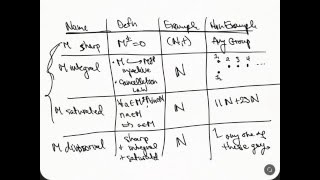 Name Defn Example Non Example
M sharp M^± = 0 (N,+) Any Group
M integral • M → M^gp injective • Cancellation Law N 1 2 3 4
M saturated ∀a∈M^gp, n∈N na∈M ⇒ a∈M N 11N+23N
M divisorial sharp + integral + saturated N any one of these guys